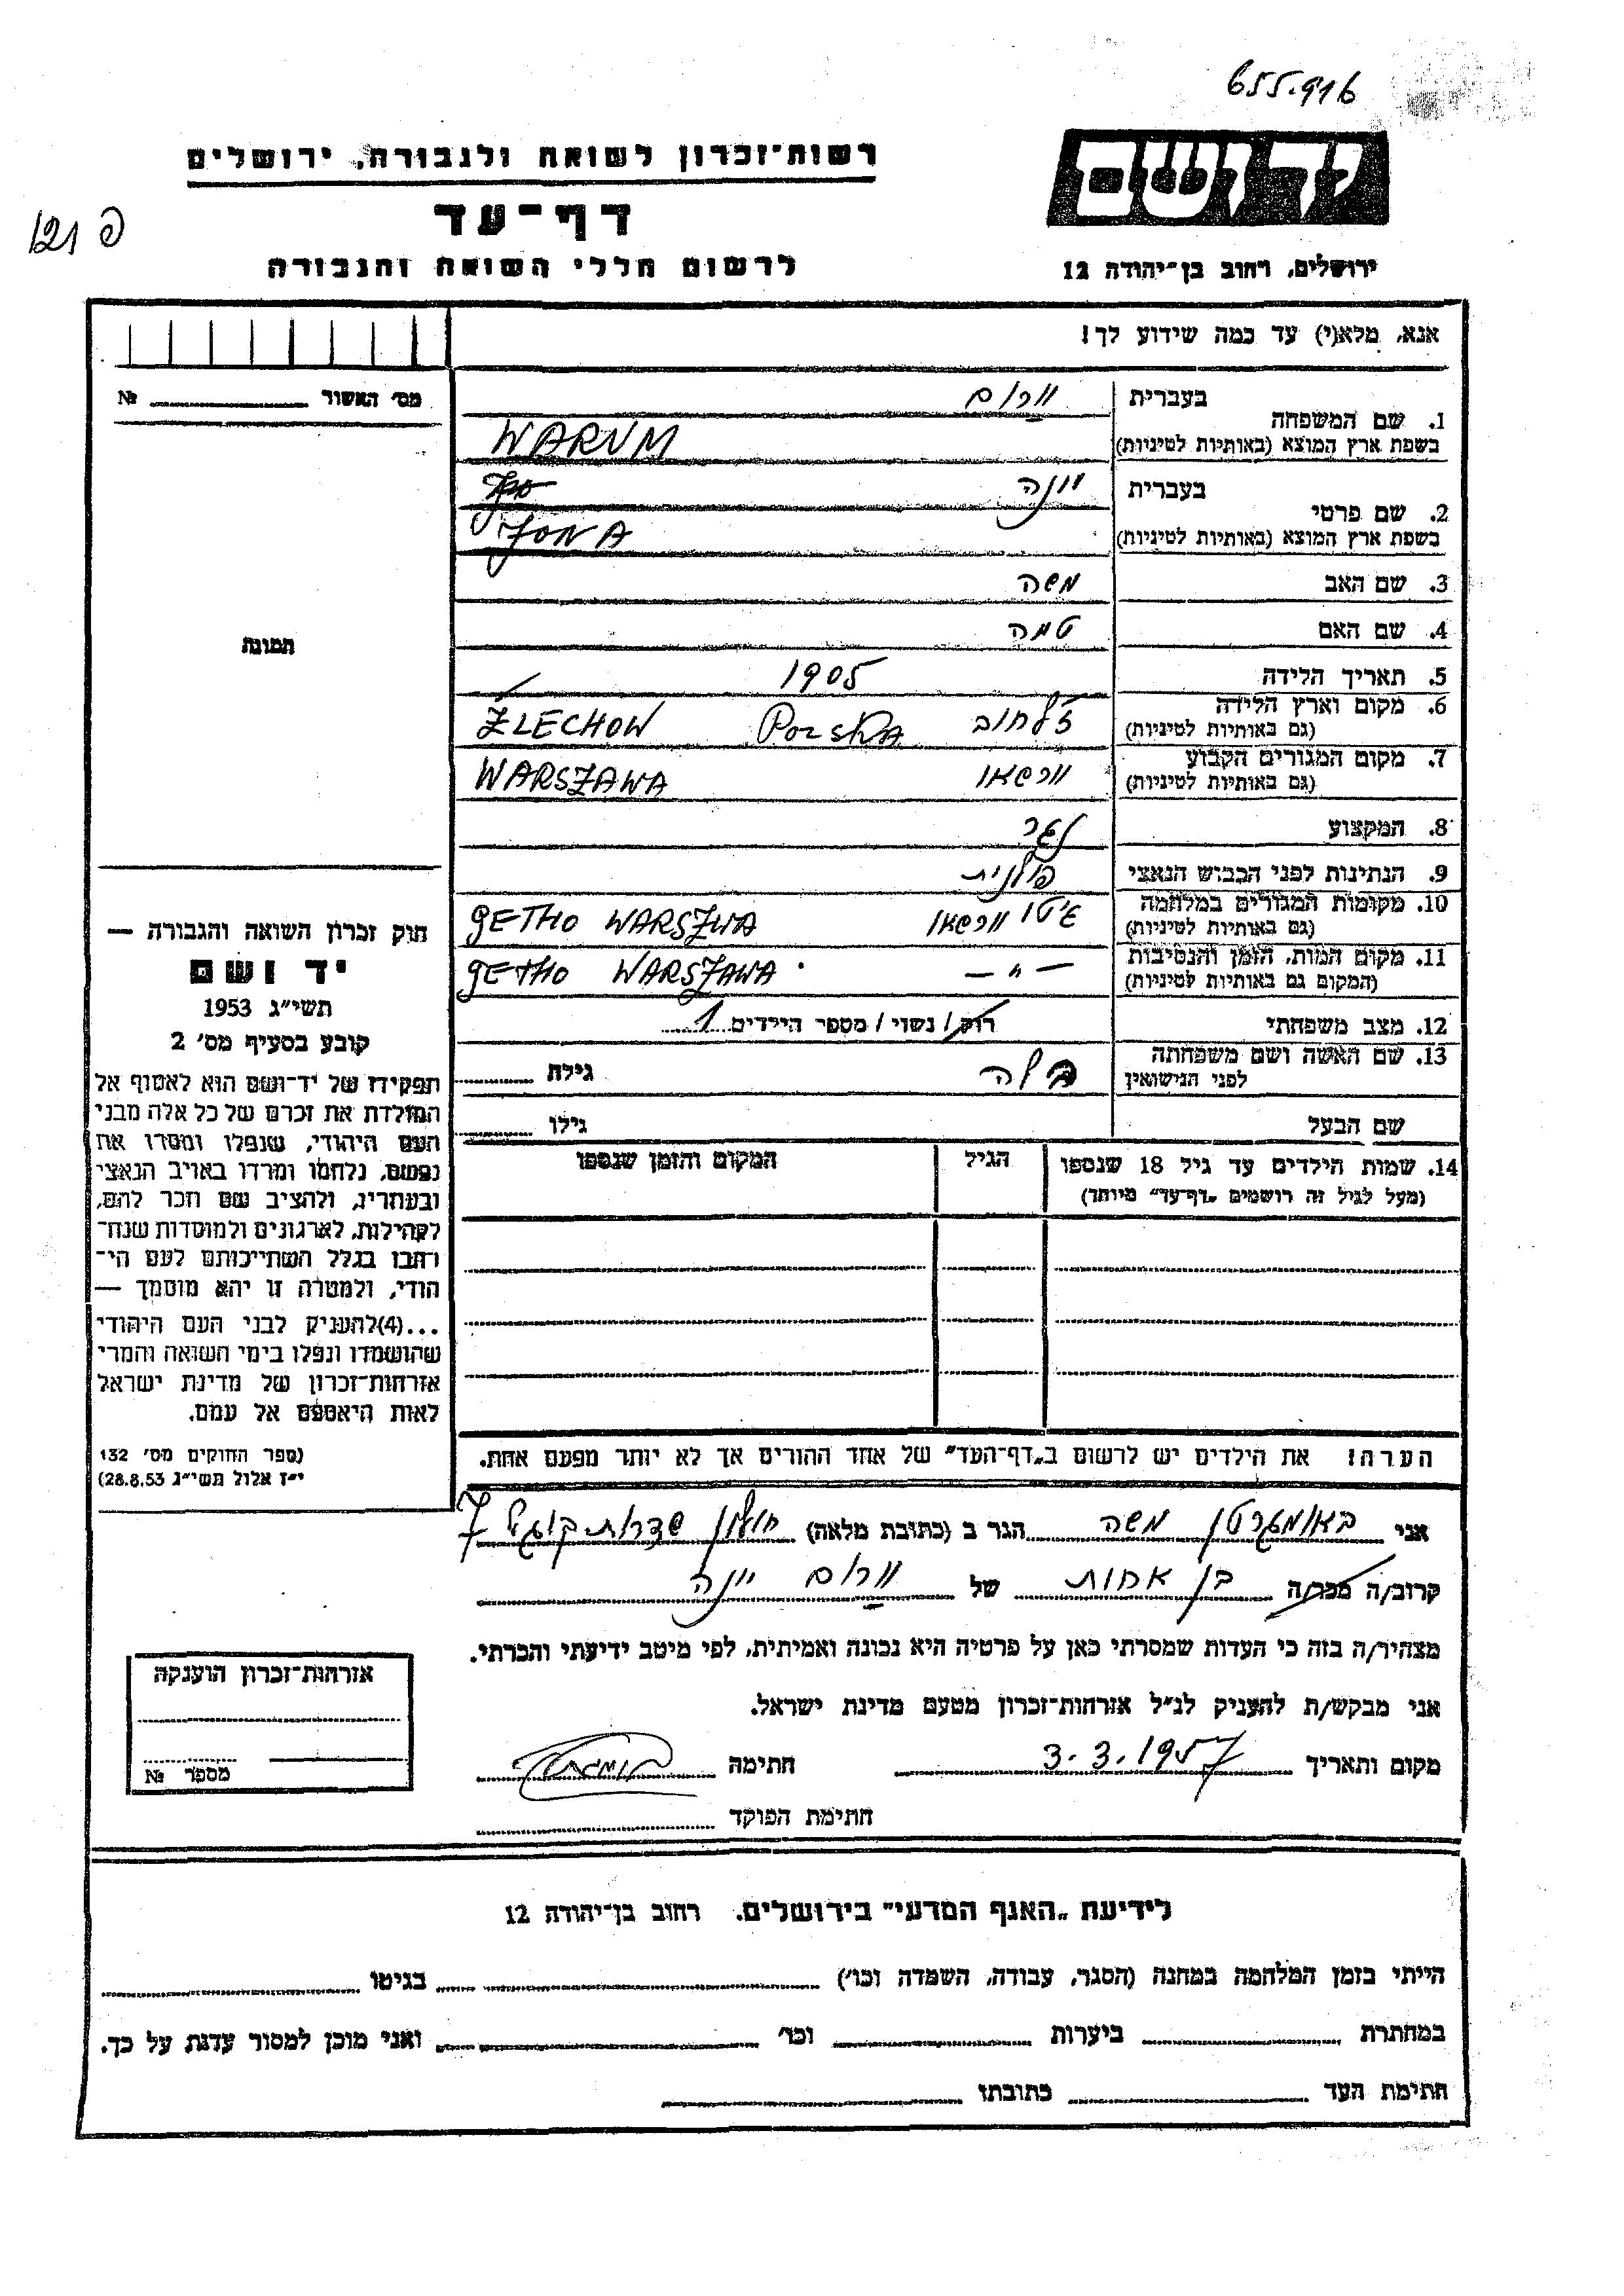 655.916
רשות־זכרון לשואה ולגבורה, ירושלים
יד ושם
דף־עד
121 פ
לרשום חללי השואה והגבורה
ירושלים, רחוב בן־יהודה 12
אנא, מלא(י) עד כמה שידוע לך!
מס׳ האשור № 
1. שם המשפחה
בעברית ורום
בשפת ארץ המוצא (באותיות לטיניות) WARUM
2. שם פרטי
בעברית יונה
בשפת ארץ המוצא (באותיות לטיניות) JONA
3. שם האב משה
4. שם האם טמה
5. תאריך הלידה 1905
6. מקום וארץ הלידה
(גם באותיות לטיניות) ז'לחוב Polska ŻLECHOW
7. מקום המגורים הקבוע
(גם באותיות לטיניות) וורשאו WARSZAWA
8. המקצוע נגר
9. הנתינות לפני הכבוש הנאצי פולנית
10. מקומות המגורים במלחמה
(גם באותיות לטיניות) גיטו וורשאו GETHO WARSZWA
11. מקום המות, הזמן והנסיבות
(המקום גם באותיות לטיניות) — " — GETHO WARSZAWA
12. מצב משפחתי רווק / נשוי / מספר הילדים 1
13. שם האשה ושם משפחתה
לפני הנישואין בלה גילה
שם הבעל גילו
14. שמות הילדים עד גיל 18 שנספו הגיל המקום והזמן שנספו
(מעל לגיל זה רושמים „דף־עד״ מיוחד)
הערה: את הילדים יש לרשום ב„דף־העד״ של אחד ההורים אך לא יותר מפעם אחת.
תמונה
חוק זכרון השואה והגבורה —
יד ושם
תשי״ג 1953
קובע בסעיף מס׳ 2
תפקידו של יד־ושם הוא לאסוף אל
המולדת את זכרם של כל אלה מבני
העם היהודי, שנפלו ומסרו את
נפשם, נלחמו ומרדו באויב הנאצי
ובעוזריו, ולהציב שם וזכר להם,
לקהילות, לארגונים ולמוסדות שנח־
רבו בגלל השתייכותם לעם הי־
הודי, ולמטרה זו יהא מוסמך —
...(4) להעניק לבני העם היהודי
שהושמדו ונפלו בימי השואה והמרי
אזרחות־זכרון של מדינת ישראל
לאות היאספם אל עמם.
(ספר החוקים מס׳ 132
י״ז אלול תשי״ג 28.8.53)
אני באומגרטן משה הגר ב (כתובת מלאה) חולון שדרות קוגל 7
קרוב/ה מכר/ה בן אחות של ורום יונה
מצהיר/ה בזה כי העדות שמסרתי כאן על פרטיה היא נכונה ואמיתית, לפי מיטב ידיעתי והכרתי.
אני מבקש/ת להעניק לנ״ל אזרחות־זכרון מטעם מדינת ישראל.
מקום ותאריך 3.3.1957 חתימה
חתימת הפוקד
אזרחות־זכרון הוענקה
מספר №
לידיעת „האגף המדעי״ בירושלים. רחוב בן־יהודה 12
הייתי בזמן המלחמה במחנה (הסגר, עבודה, השמדה וכו׳) בגיטו
במחתרת ביערות וכו׳ ואני מוכן למסור עדות על כך.
חתימת העד כתובתו